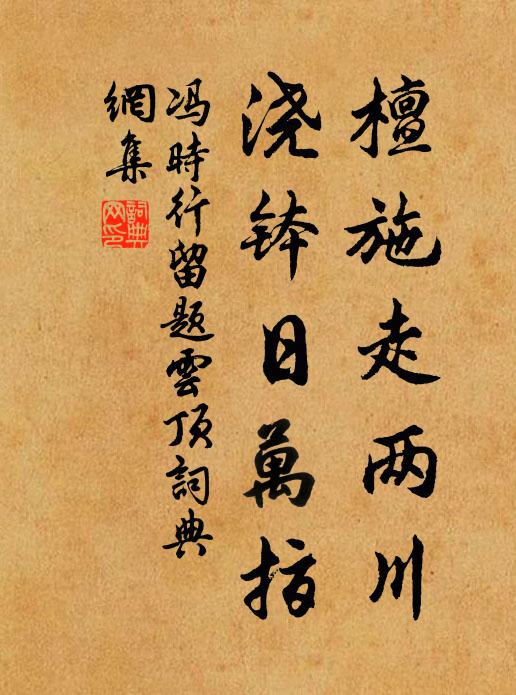 檀施走两川
浇钵日萬指
冯時行留题雲顶詞典
網集
詞典网印